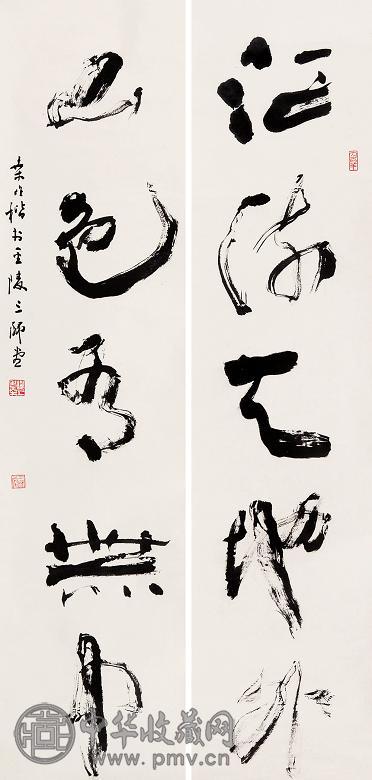 江流天地外
山色有無中
桑作楷书金陵三师堂
中华收藏网
www.pmv.cn